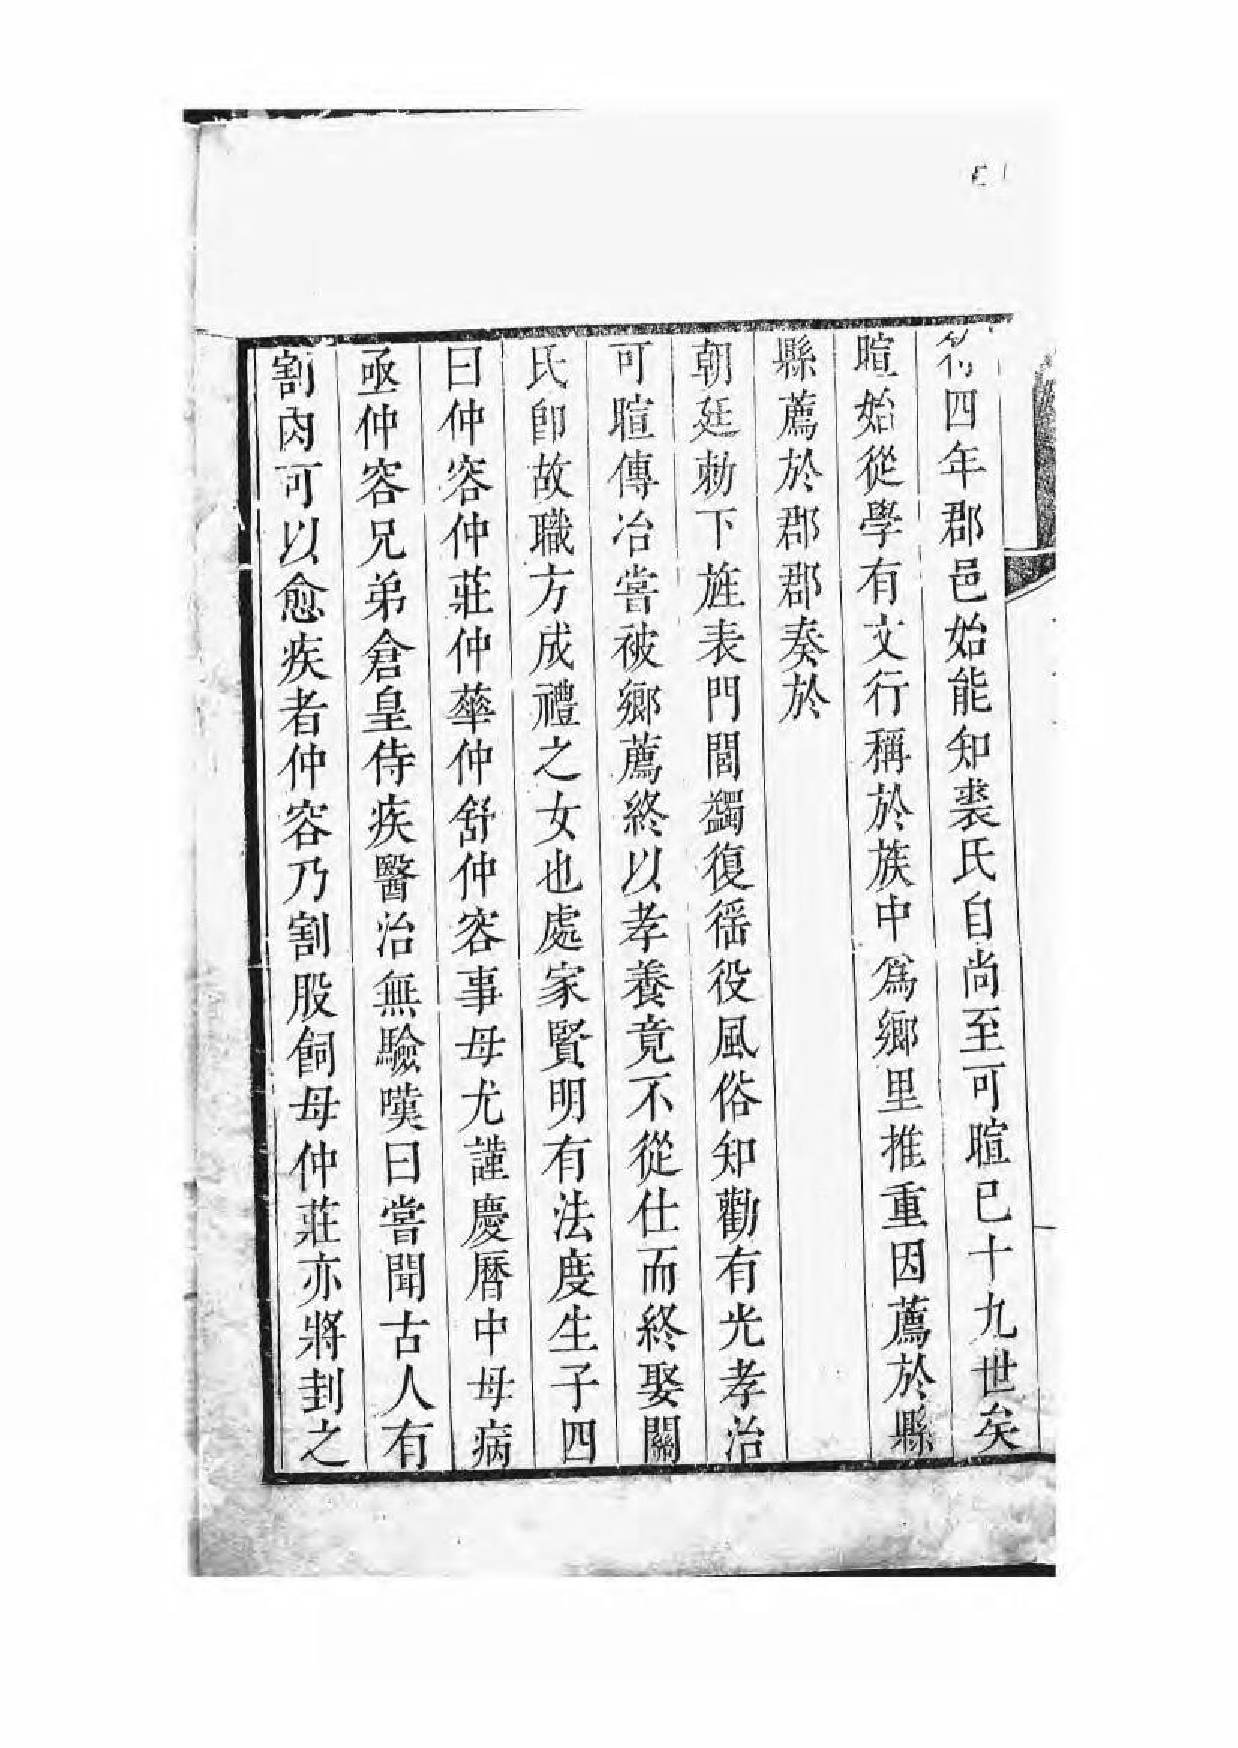 符四年郡邑始能知裘氏自尚至可暄已十九世矣
暄始從學有文行稱於族中爲鄉里推重因薦於縣
縣薦於郡郡奏於
朝廷勅下旌表門閭蠲復徭役風俗知勸有光孝治
可暄傳冶嘗被鄉薦終以孝養竟不從仕而終娶關
氏卽故職方成禮之女也處家賢明有法度生子四
曰仲容仲莊仲華仲舒仲容事母尤謹慶曆中母病
亟仲容兄弟倉皇侍疾醫治無驗嘆曰嘗聞古人有
割肉可以愈疾者仲容乃割股飼母仲莊亦將刲之